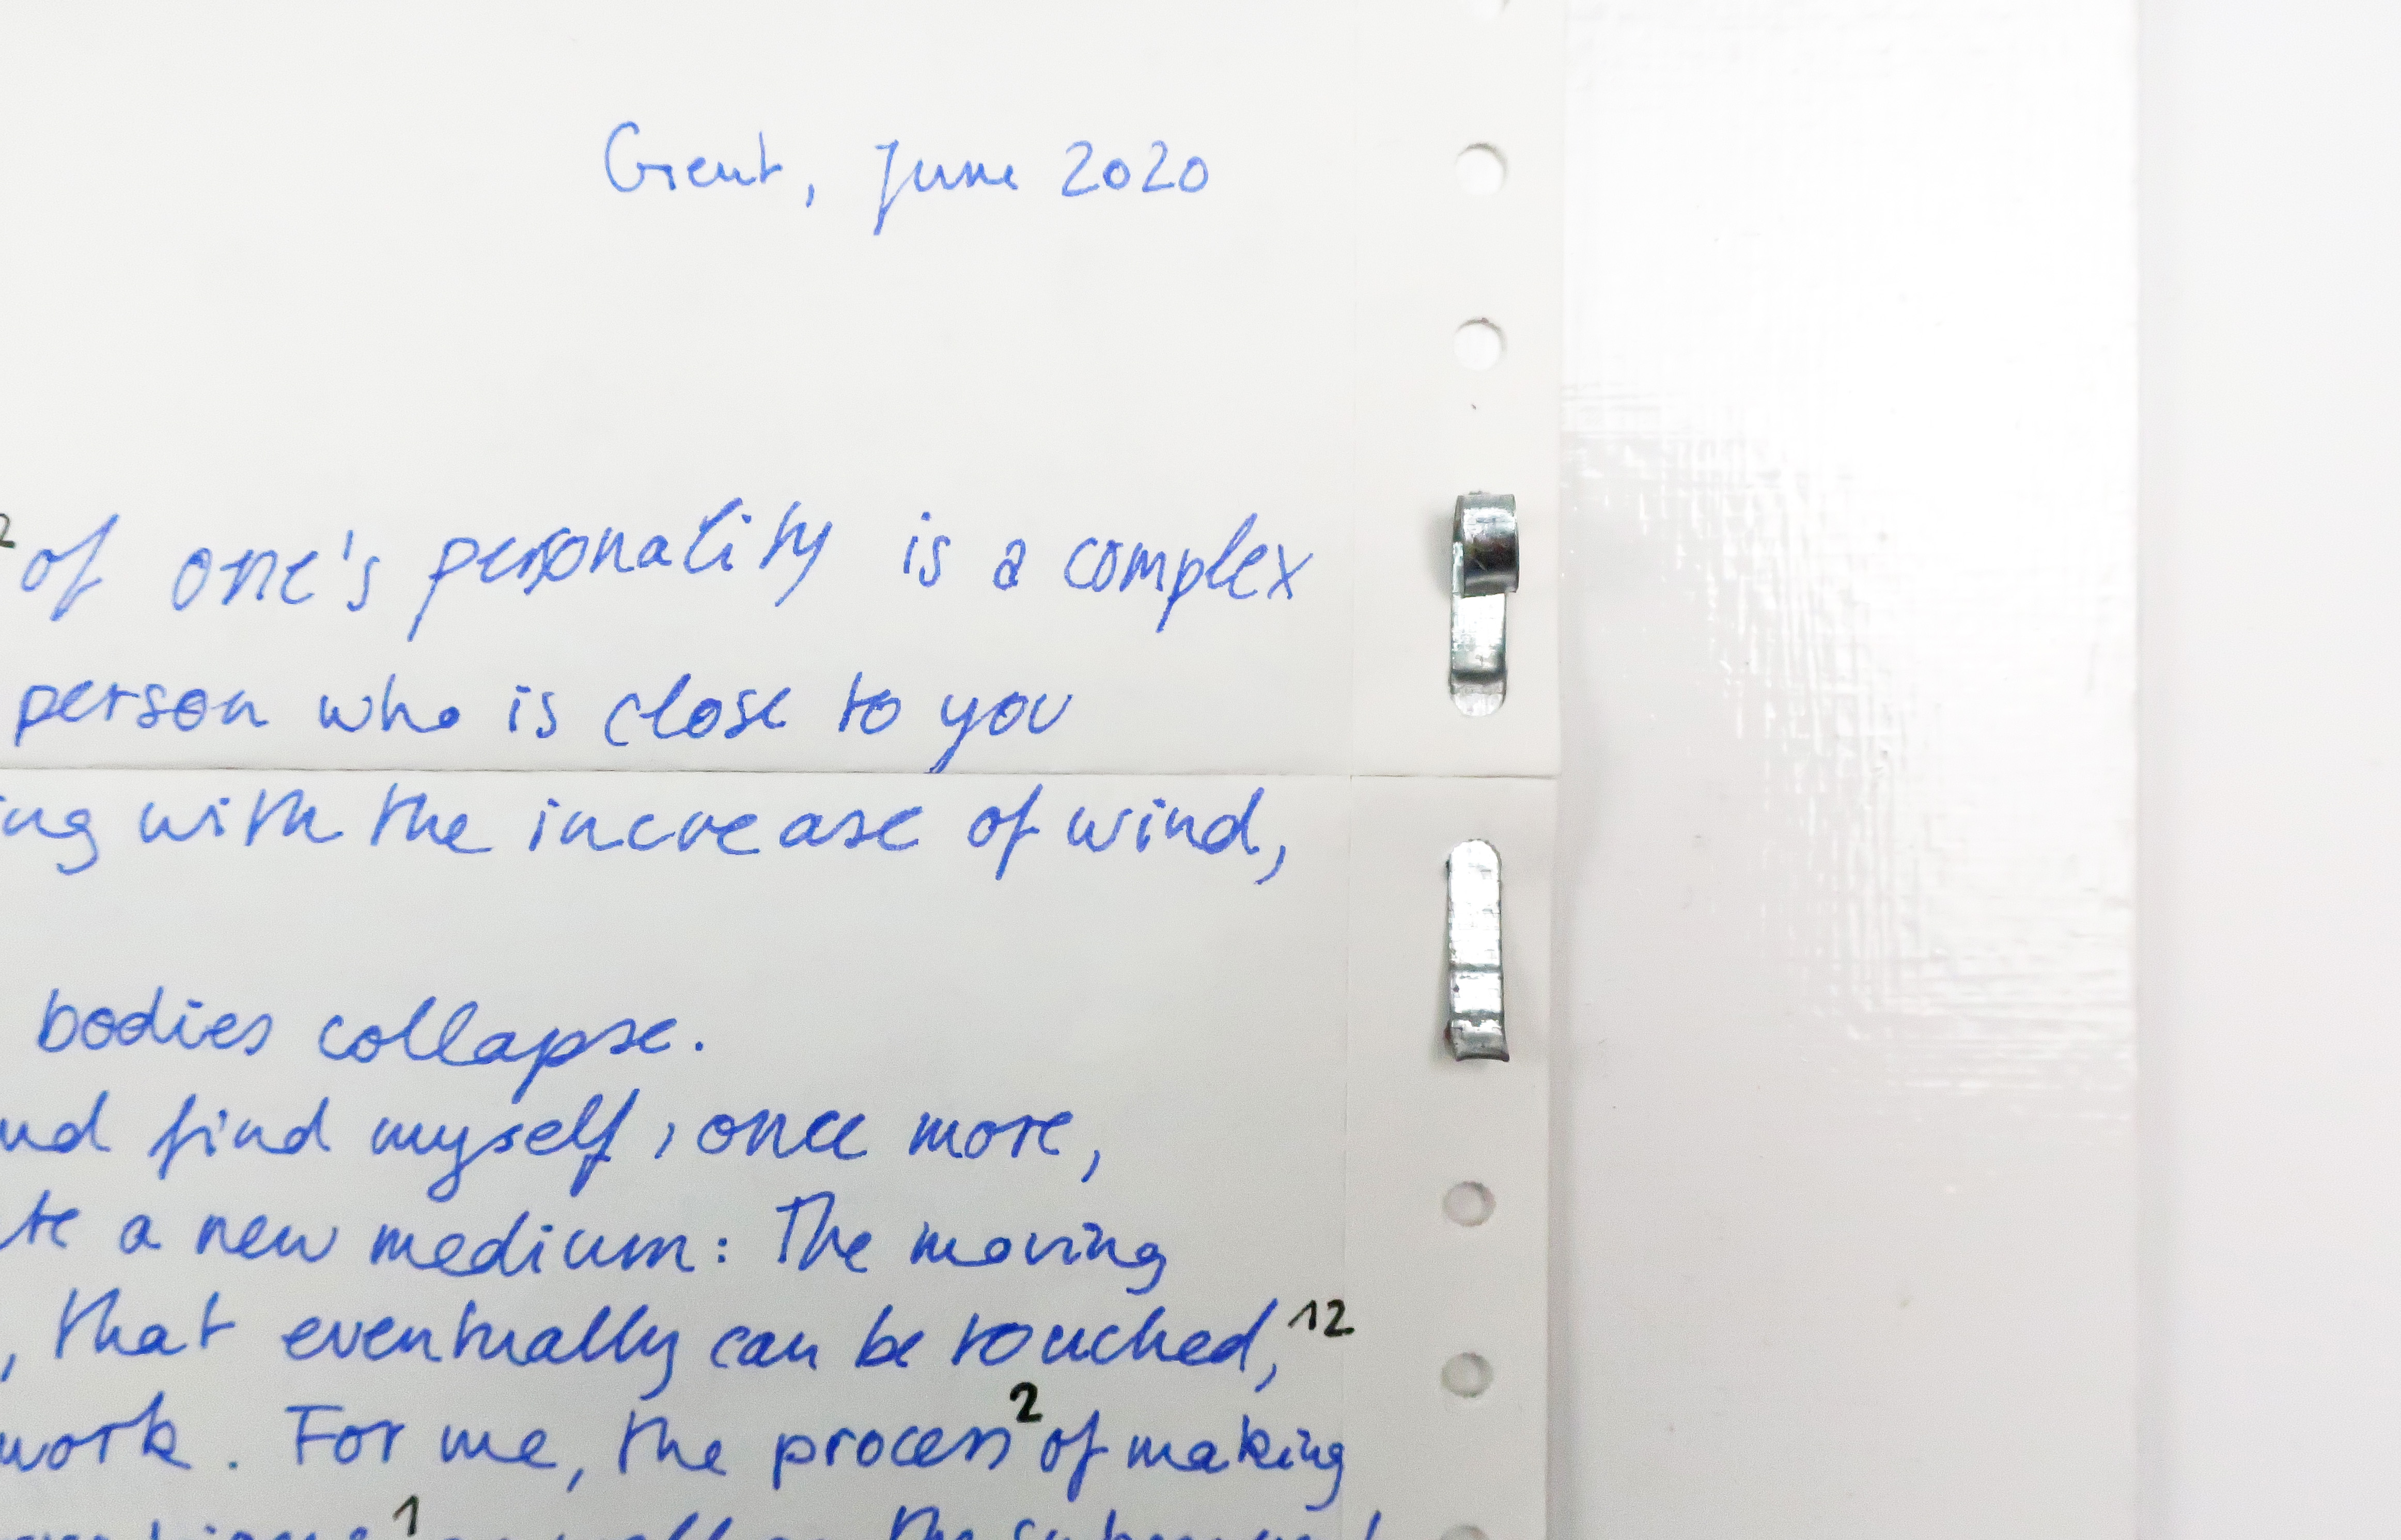 Gent, June 2020
² of one's personality is a complex
person who is close to you
ing with the increase of wind,
bodies collapse.
nd find myself, once more,
te a new medium: The moving
, that eventually can be touched,¹²
work. For me, the process² of making
1